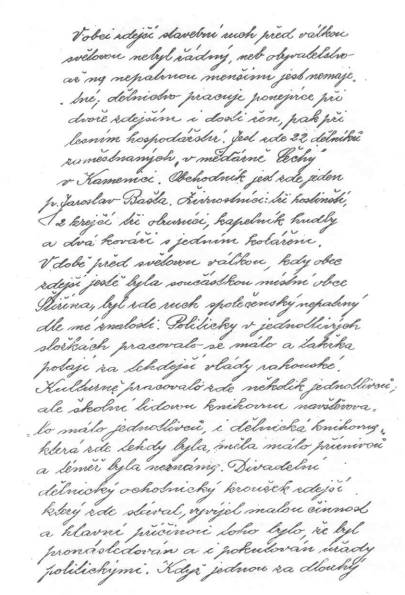 V obci zdejší stavební ruch před válkou
světovou nebyl řádný, neb obyvatelstvo
až na nepatrnou menšinu jest nemaje-
tné, dělnictvo pracuje ponejvíce při
dvoře zdejším i dosti žen, pak při
lesním hospodářství. Jest zde 22 dělníků
zaměstnaných v měďárně Čechy
v Kamenici. Obchodník jest zde jeden
p. Jaroslav Bašta. Živnostníci: tři hostinští,
2 krejčí tři obuvníci, kapelník hudby
a dva kováři s jedním kolářem.
V době před světovou válkou, kdy obec
zdejší ještě byla součástkou místní obce
Štiřína, byl zde ruch společenský nepatrný
dle mé znalosti. Politicky v jednotlivých
složkách pracovalo se málo a takřka
potají za tehdejší vlády rakouské.
Kulturně pracovalo zde několik jednotlivců,
ale školní lidovou knihovnu navštěvova-
lo málo jednotlivců, i dělnická knihovna,
která zde tehdy byla, měla málo příznivců
a téměř byla neznámá. Divadelní
dělnický ochotnický kroužek zdejší
který zde stával, vyvíjel malou činnost
a hlavní příčinou toho bylo, že byl
pronásledován a i pokutován úřady
politickými. Když jednou za dlouhý